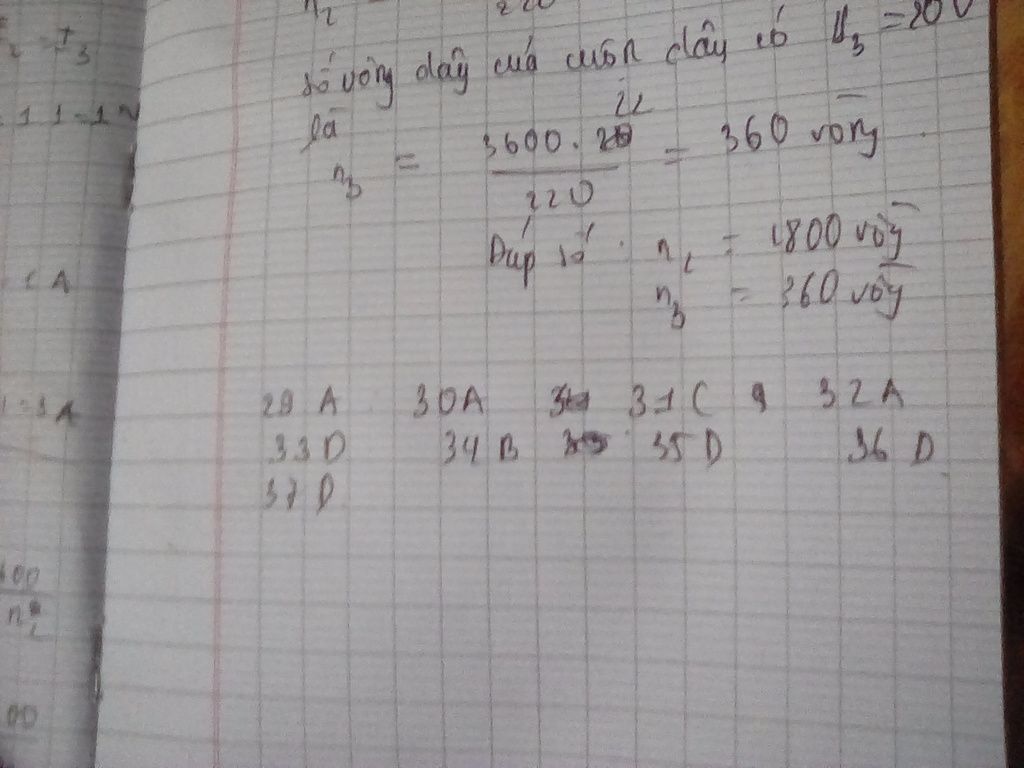 n₂ 220
Số vòng dây của cuộn dây có U₃ = 20V
là
22
n₃ = 3600. 20 / 220 = 360 vòng
Đáp số: n₂ = 1800 vòng
n₃ = 360 vòng
29 A 30A 31C 32A
33D 34 B 35 D 36 D
37 D